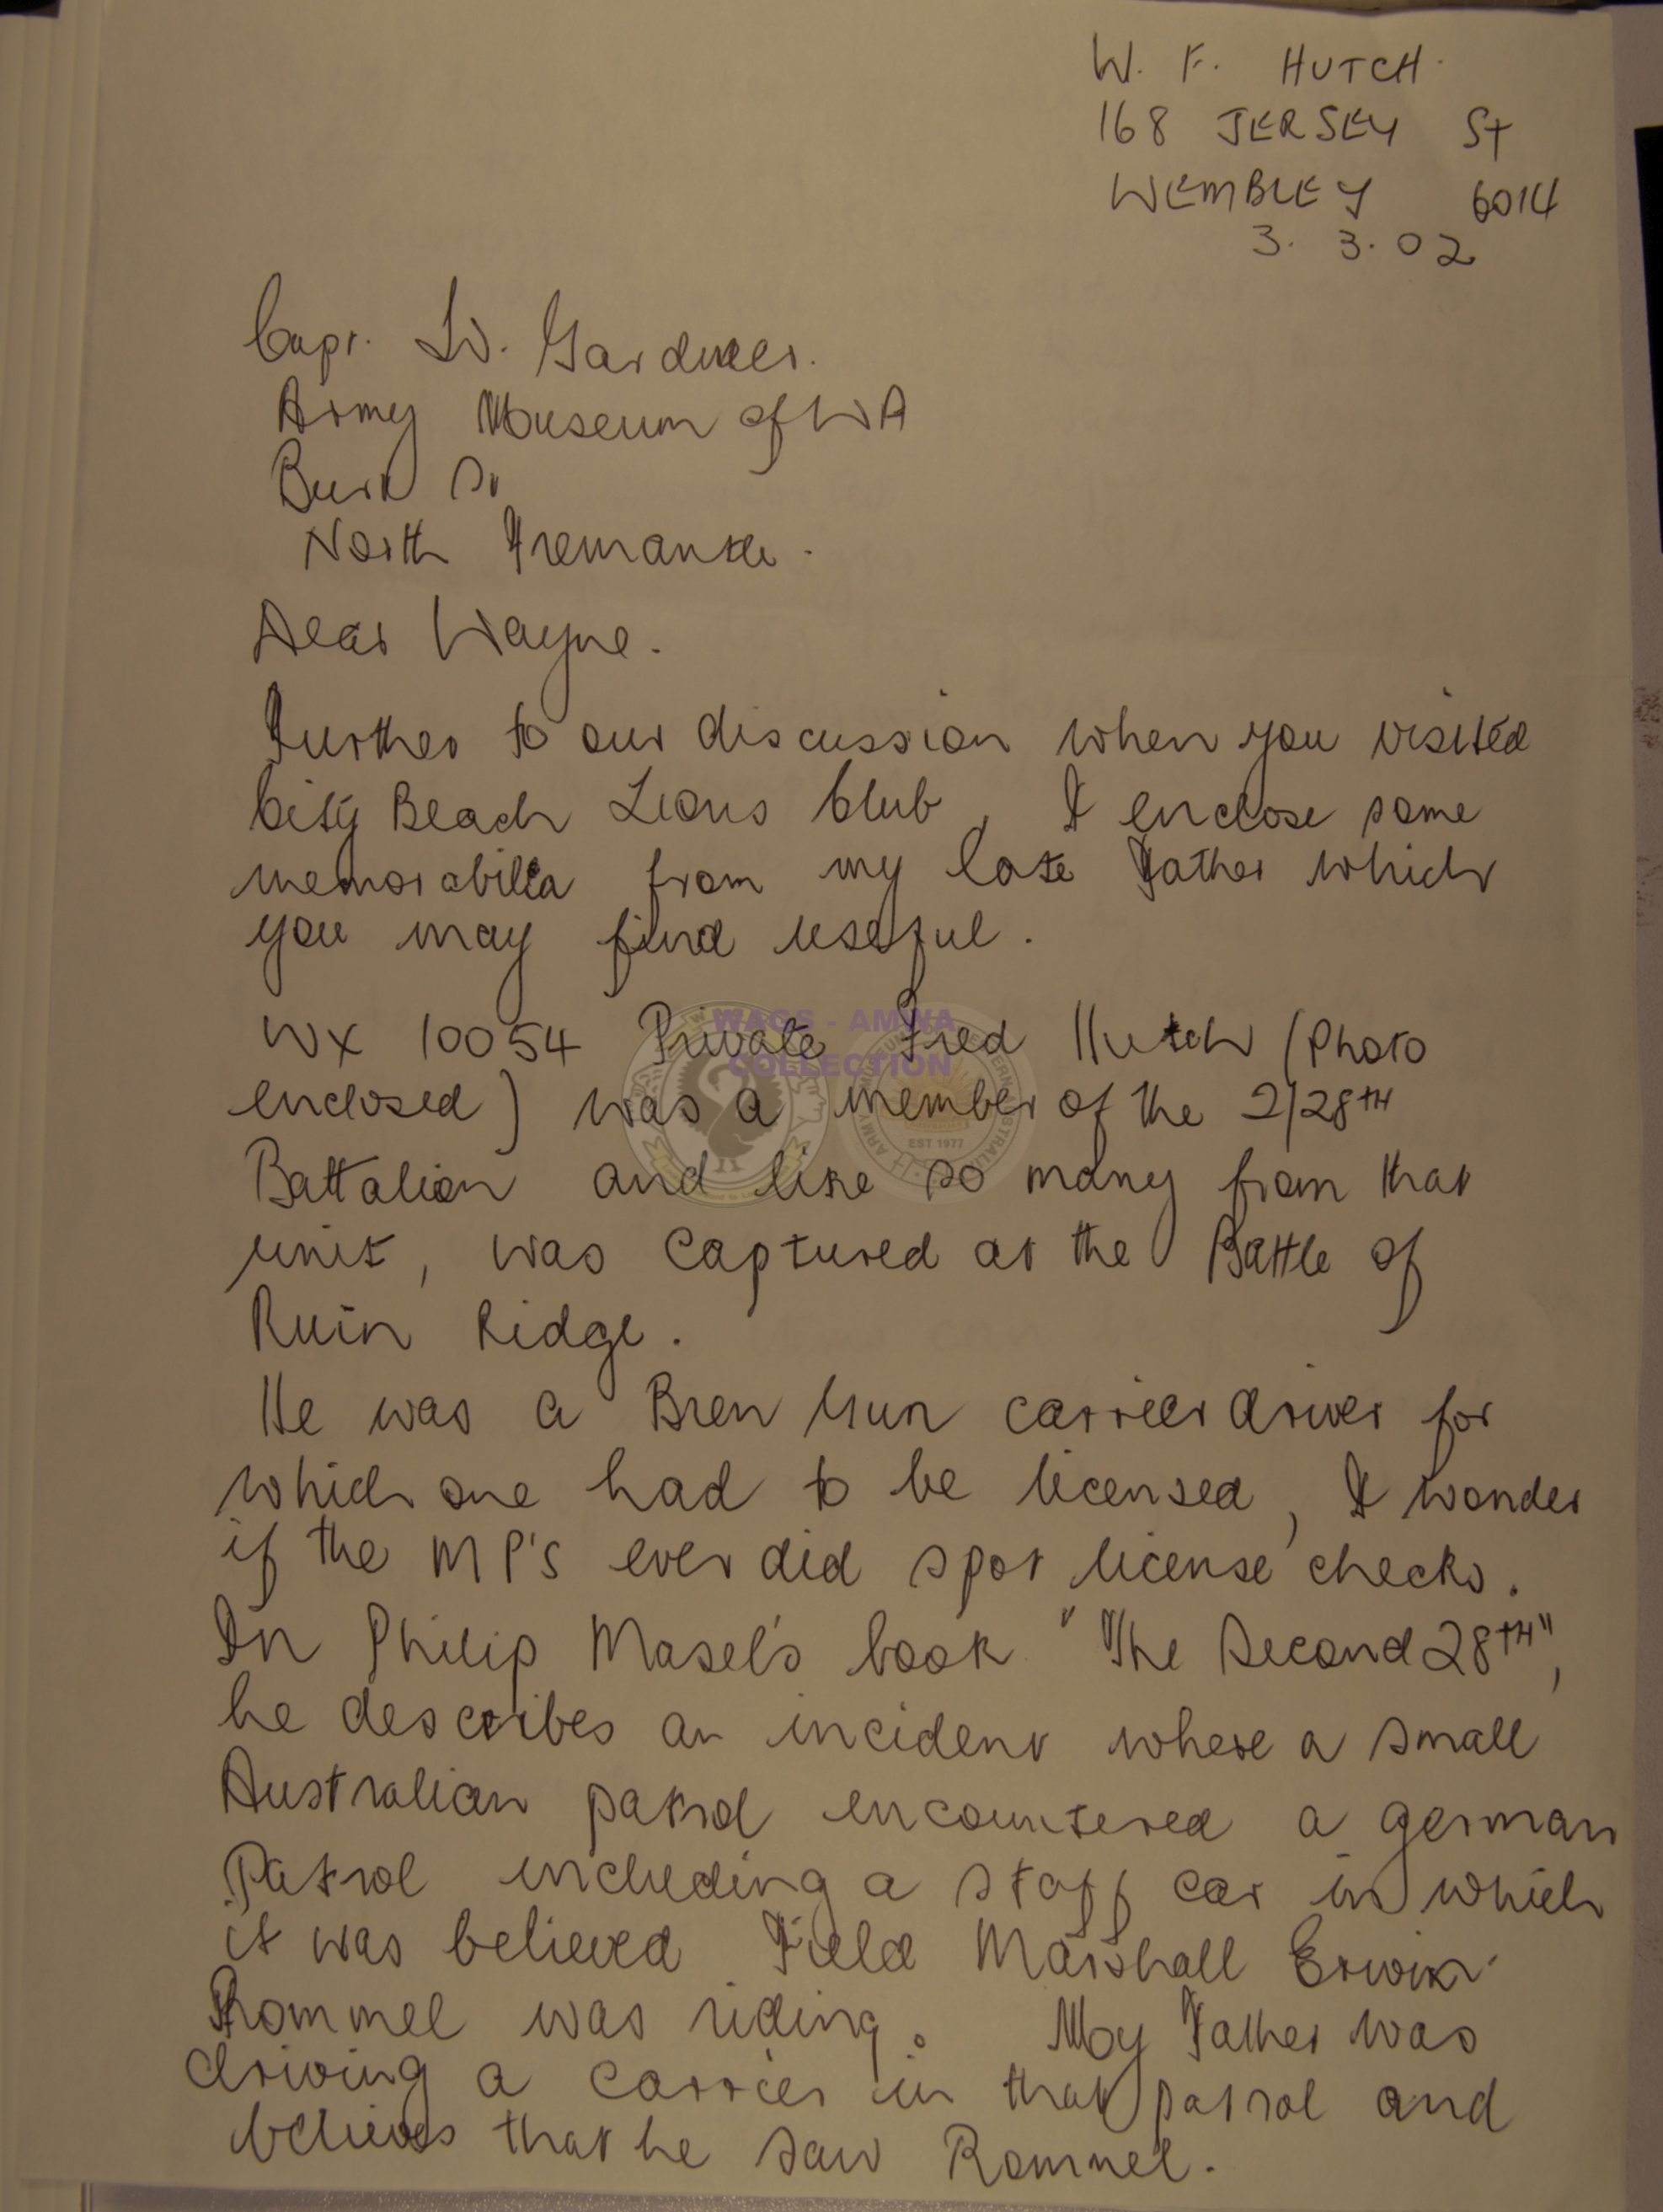 W. F. HUTCH.
168 JERSEY St
WEMBLEY 6014
3. 3. 02
Capt. W. Gardiner.
Army Museum of WA
Burt St
North Fremantle.
Dear Wayne.
Further to our discussion when you visited
City Beach Lions Club, I enclose some
memorabilia from my late Father which
you may find useful.
WX 10054 Private Fred Hutch (Photo
enclosed) was a member of the 2/28TH
Battalion and like so many from that
unit, was captured at the Battle of
Ruin Ridge.
He was a Bren Gun carrier driver for
which one had to be licensed, I wonder
if the MP's ever did spot license checks.
In Philip Masel's book "The Second 28TH",
he describes an incident where a small
Australian patrol encountered a german
Patrol including a staff car in which
it was believed Field Marshall Erwin
Rommel was riding. My Father was
driving a carrier in that patrol and
believes that he saw Rommel.
WAGS - AMWA
COLLECTION
EST 1977